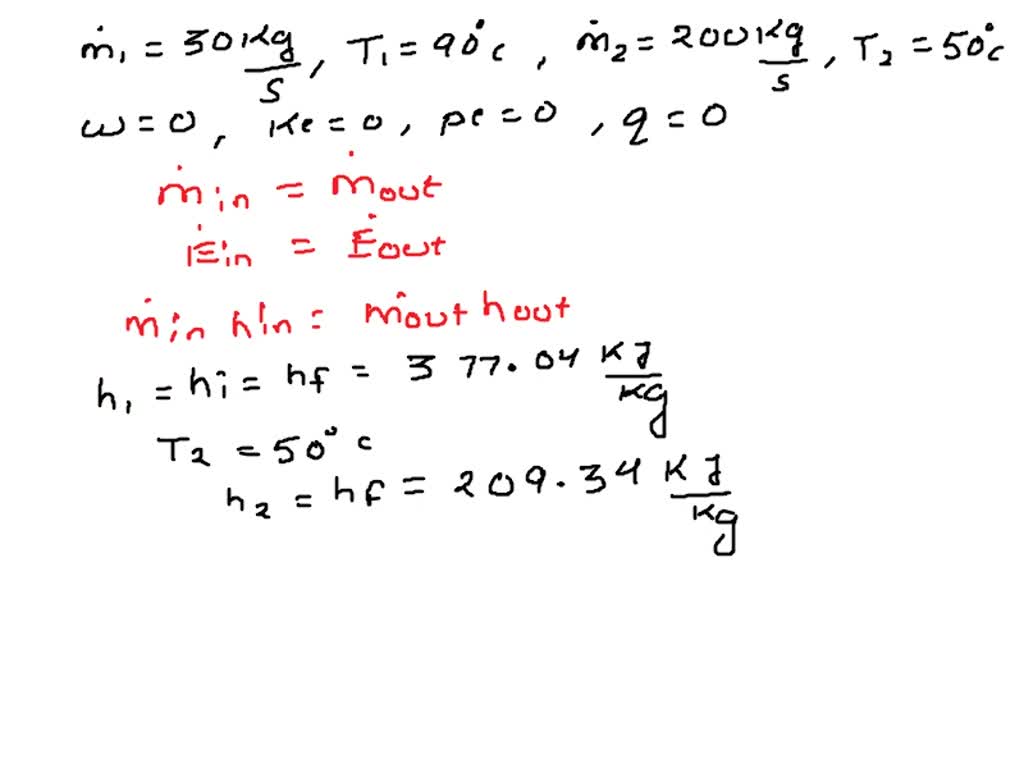 ṁ₁ = 30 Kg/s, T₁ = 90°c, ṁ₂ = 200 Kg/s, T₂ = 50°c
w = 0, Ke = 0, pe = 0, q = 0
ṁin = ṁout
Ėin = Ėout
ṁin hin = ṁout hout
h₁ = hi = hf = 377.04 KJ/Kg
T₂ = 50°c
h₂ = hf = 209.34 KJ/Kg